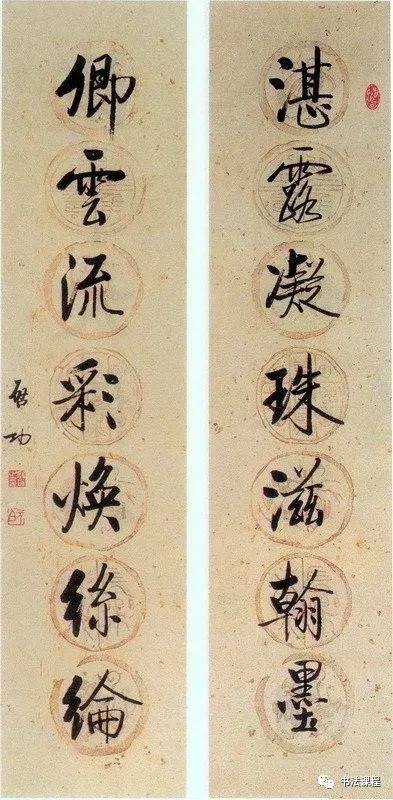 湛露凝珠滋翰墨
卿雲流彩焕絲綸
啓功
书法课程